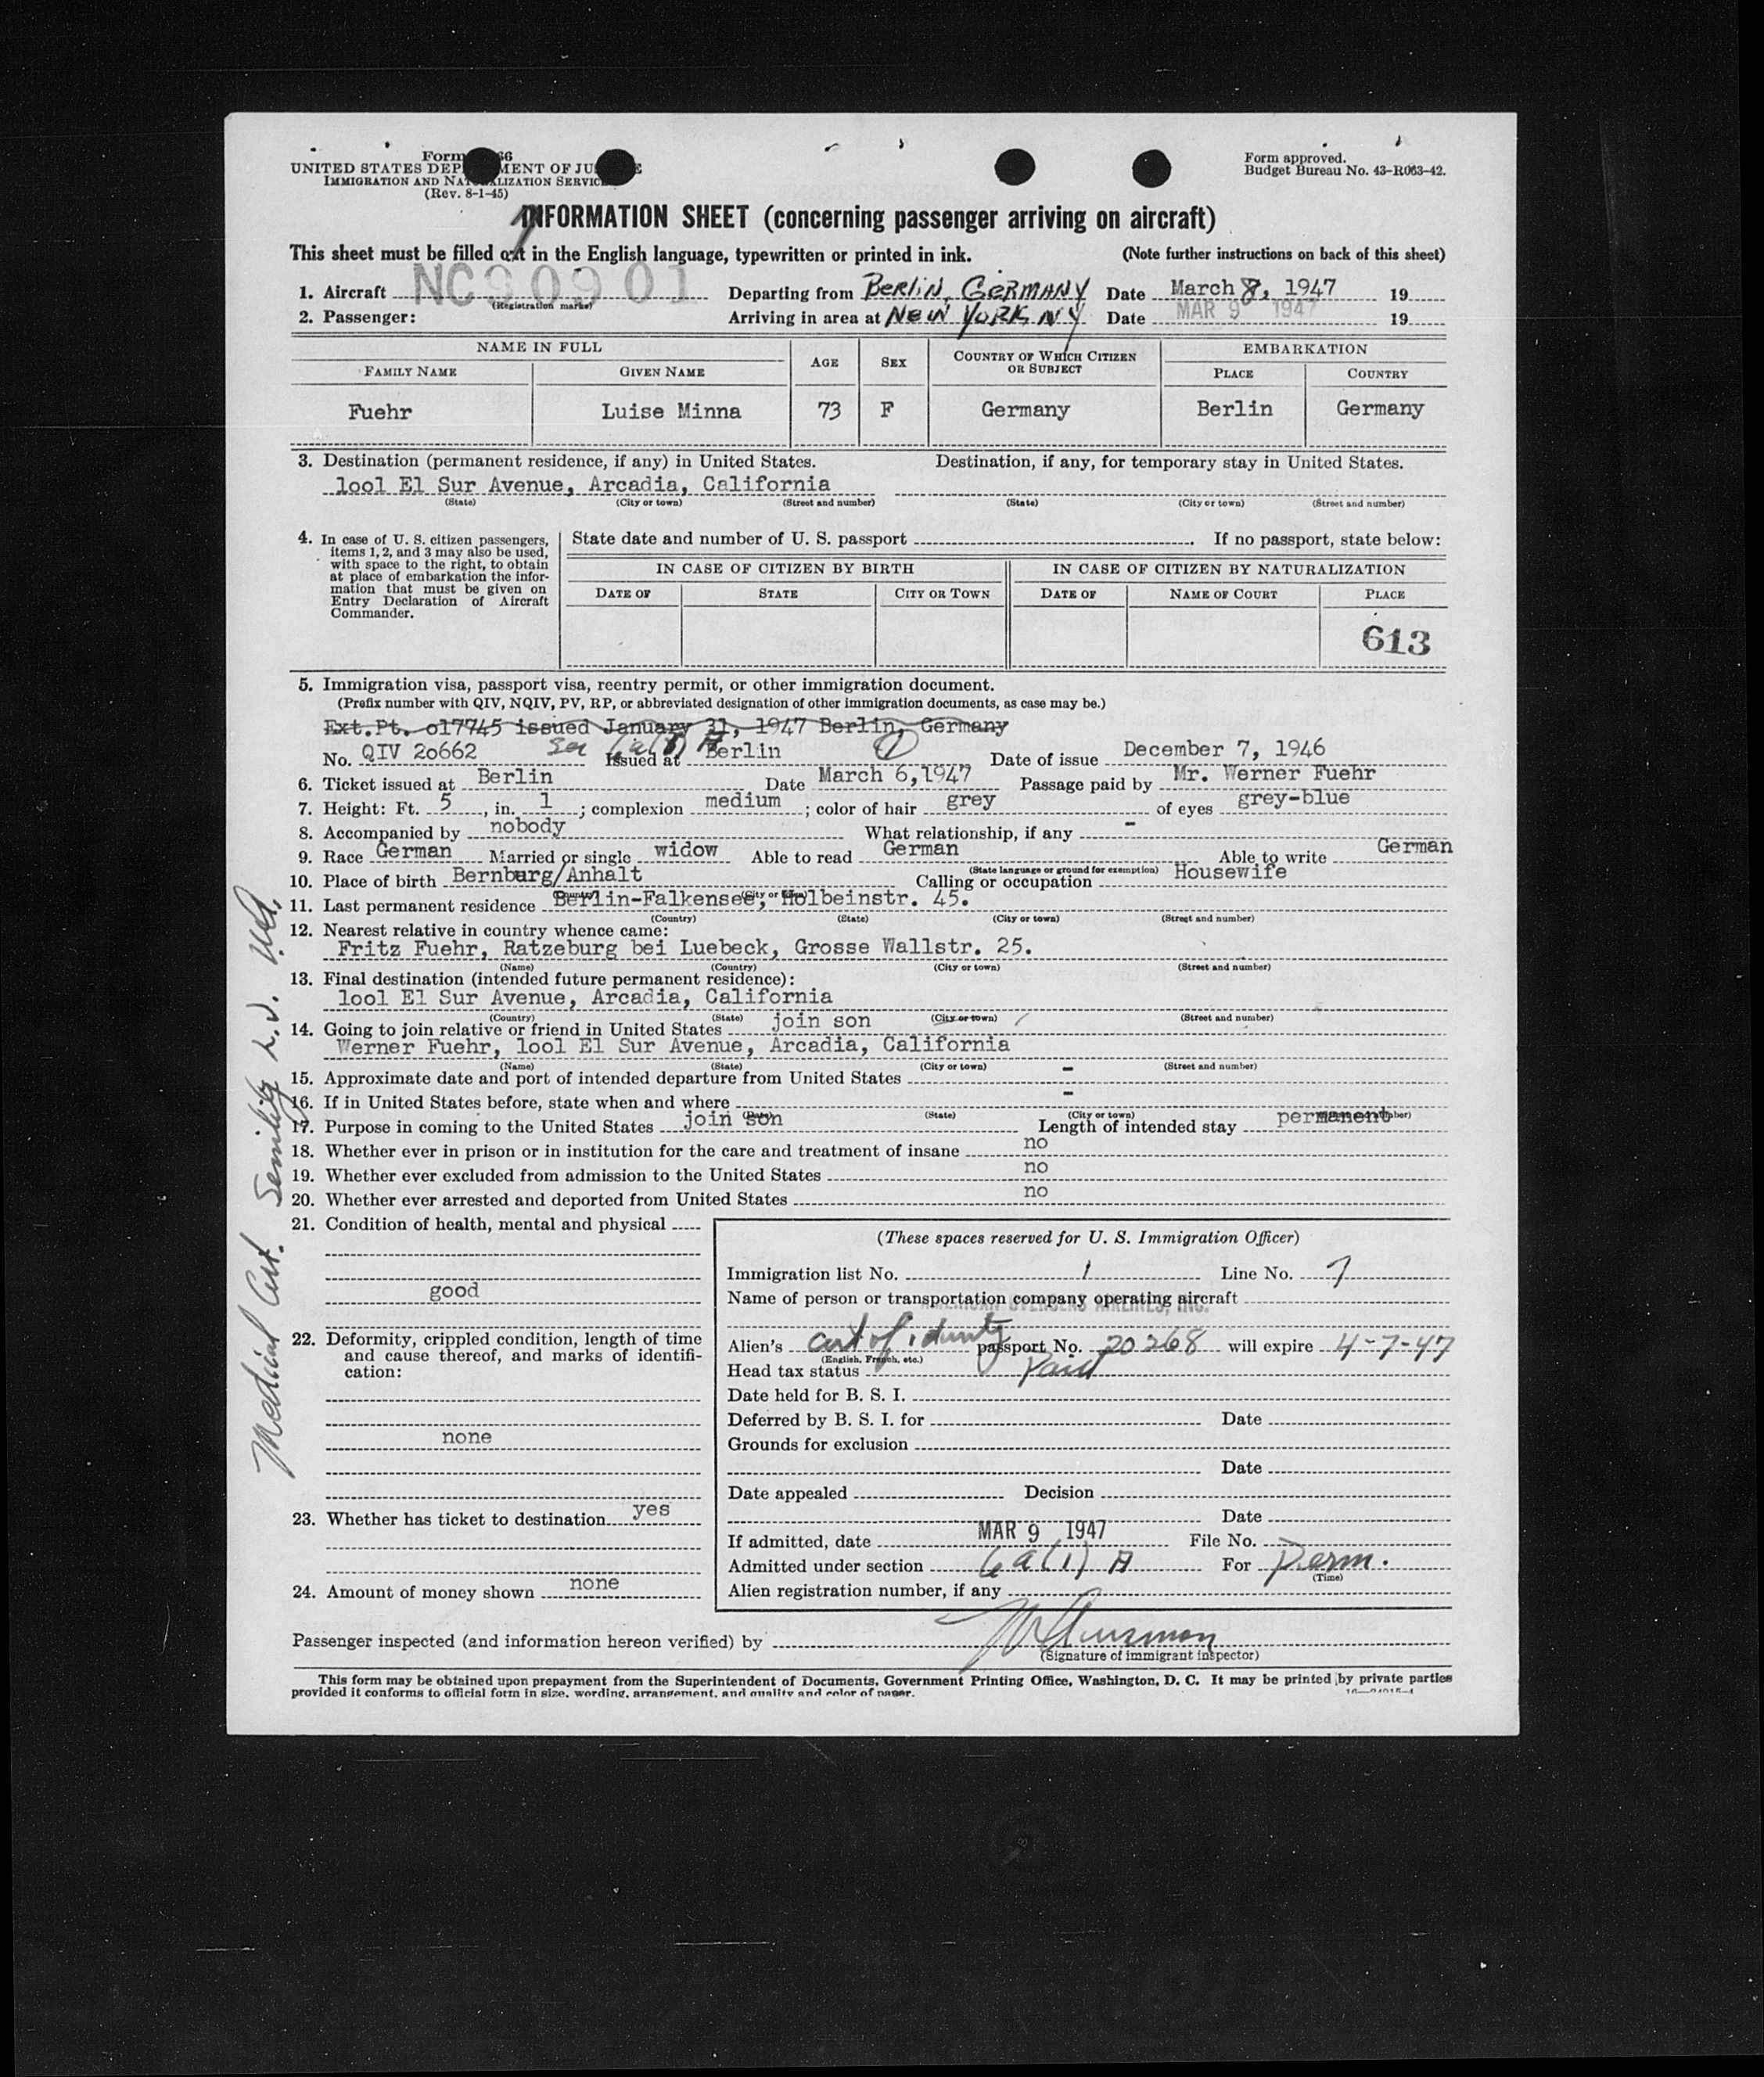 Form 66
UNITED STATES DEP MENT OF JU E
IMMIGRATION AND NA LIZATION SERVIC
(Rev. 8-1-45)
Form approved.
Budget Bureau No. 43-R063-42.
INFORMATION SHEET (concerning passenger arriving on aircraft)
This sheet must be filled out in the English language, typewritten or printed in ink. (Note further instructions on back of this sheet)
1. Aircraft NC90901 Departing from BERLIN, GERMANY Date March 8, 1947 19
(Registration marks)
2. Passenger: Arriving in area at NEW YORK NY Date MAR 9 1947 19
NAME IN FULL AGE SEX COUNTRY OF WHICH CITIZEN OR SUBJECT EMBARKATION
FAMILY NAME GIVEN NAME PLACE COUNTRY
Fuehr Luise Minna 73 F Germany Berlin Germany
3. Destination (permanent residence, if any) in United States. Destination, if any, for temporary stay in United States.
lool El Sur Avenue, Arcadia, California
(State) (City or town) (Street and number) (State) (City or town) (Street and number)
4. In case of U. S. citizen passengers,
items 1, 2, and 3 may also be used,
with space to the right, to obtain
at place of embarkation the infor-
mation that must be given on
Entry Declaration of Aircraft
Commander.
State date and number of U. S. passport If no passport, state below:
IN CASE OF CITIZEN BY BIRTH IN CASE OF CITIZEN BY NATURALIZATION
DATE OF STATE CITY OR TOWN DATE OF NAME OF COURT PLACE
613
5. Immigration visa, passport visa, reentry permit, or other immigration document.
(Prefix number with QIV, NQIV, PV, RP, or abbreviated designation of other immigration documents, as case may be.)
Ext.Pt. o17745 issued January 31, 1947 Berlin, Germany
No. QIV 2o662 Issued at Berlin Date of issue December 7, 1946
6. Ticket issued at Berlin Date March 6,1947 Passage paid by Mr. Werner Fuehr
7. Height: Ft. 5, in. 1; complexion medium; color of hair grey of eyes grey-blue
8. Accompanied by nobody What relationship, if any -
9. Race German Married or single widow Able to read German Able to write German
(State language or ground for exemption)
10. Place of birth Bernburg/Anhalt Calling or occupation Housewife
(Country) (City or town)
11. Last permanent residence Berlin-Falkensee, Holbeinstr. 45.
(Country) (State) (City or town) (Street and number)
12. Nearest relative in country whence came:
Fritz Fuehr, Ratzeburg bei Luebeck, Grosse Wallstr. 25.
(Name) (Country) (City or town) (Street and number)
13. Final destination (intended future permanent residence):
lool El Sur Avenue, Arcadia, California
(Country) (State) (City or town) (Street and number)
14. Going to join relative or friend in United States join son
Werner Fuehr, lool El Sur Avenue, Arcadia, California
(Name) (State) (City or town) (Street and number)
15. Approximate date and port of intended departure from United States -
16. If in United States before, state when and where -
(Date) (State) (City or town) (Street and number)
17. Purpose in coming to the United States join son Length of intended stay permanent
18. Whether ever in prison or in institution for the care and treatment of insane no
19. Whether ever excluded from admission to the United States no
20. Whether ever arrested and deported from United States no
21. Condition of health, mental and physical
good
22. Deformity, crippled condition, length of time
and cause thereof, and marks of identifi-
cation:
none
23. Whether has ticket to destination yes
24. Amount of money shown none
(These spaces reserved for U. S. Immigration Officer)
Immigration list No. 1 Line No. 7
Name of person or transportation company operating aircraft
AMERICAN OVERSEAS AIRLINES, INC.
Alien's cert of identity passport No. 20268 will expire 4-7-47
(English, French, etc.)
Head tax status Paid
Date held for B. S. I.
Deferred by B. S. I. for Date
Grounds for exclusion
Date
Date appealed Decision
Date
If admitted, date MAR 9 1947 File No.
Admitted under section 6a(1) A For Perm.
(Time)
Alien registration number, if any
Passenger inspected (and information hereon verified) by
(Signature of immigrant inspector)
This form may be obtained upon prepayment from the Superintendent of Documents, Government Printing Office, Washington, D. C. It may be printed by private parties
provided it conforms to official form in size, wording, arrangement, and quality and color of paper.
Medical Cert. Senility